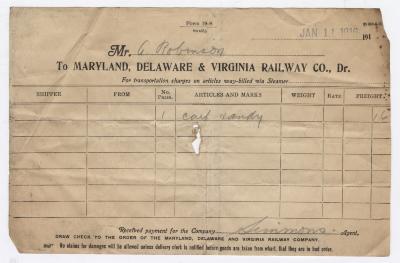 Form 19-8
JAN 11 1916 191
Mr. C Robinson
To MARYLAND, DELAWARE & VIRGINIA RAILWAY CO., Dr.
For transportation charges on articles way-billed via Steamer
SHIPPER FROM No. PKGS. ARTICLES AND MARKS WEIGHT RATE FREIGHT
1 candy 16
Received payment for the Company Simmons Agent,
DRAW CHECK TO THE ORDER OF THE MARYLAND, DELAWARE AND VIRGINIA RAILWAY COMPANY.
No claims for damages will be allowed unless delivery clerk is notified before goods are taken from wharf, that they are in bad order.